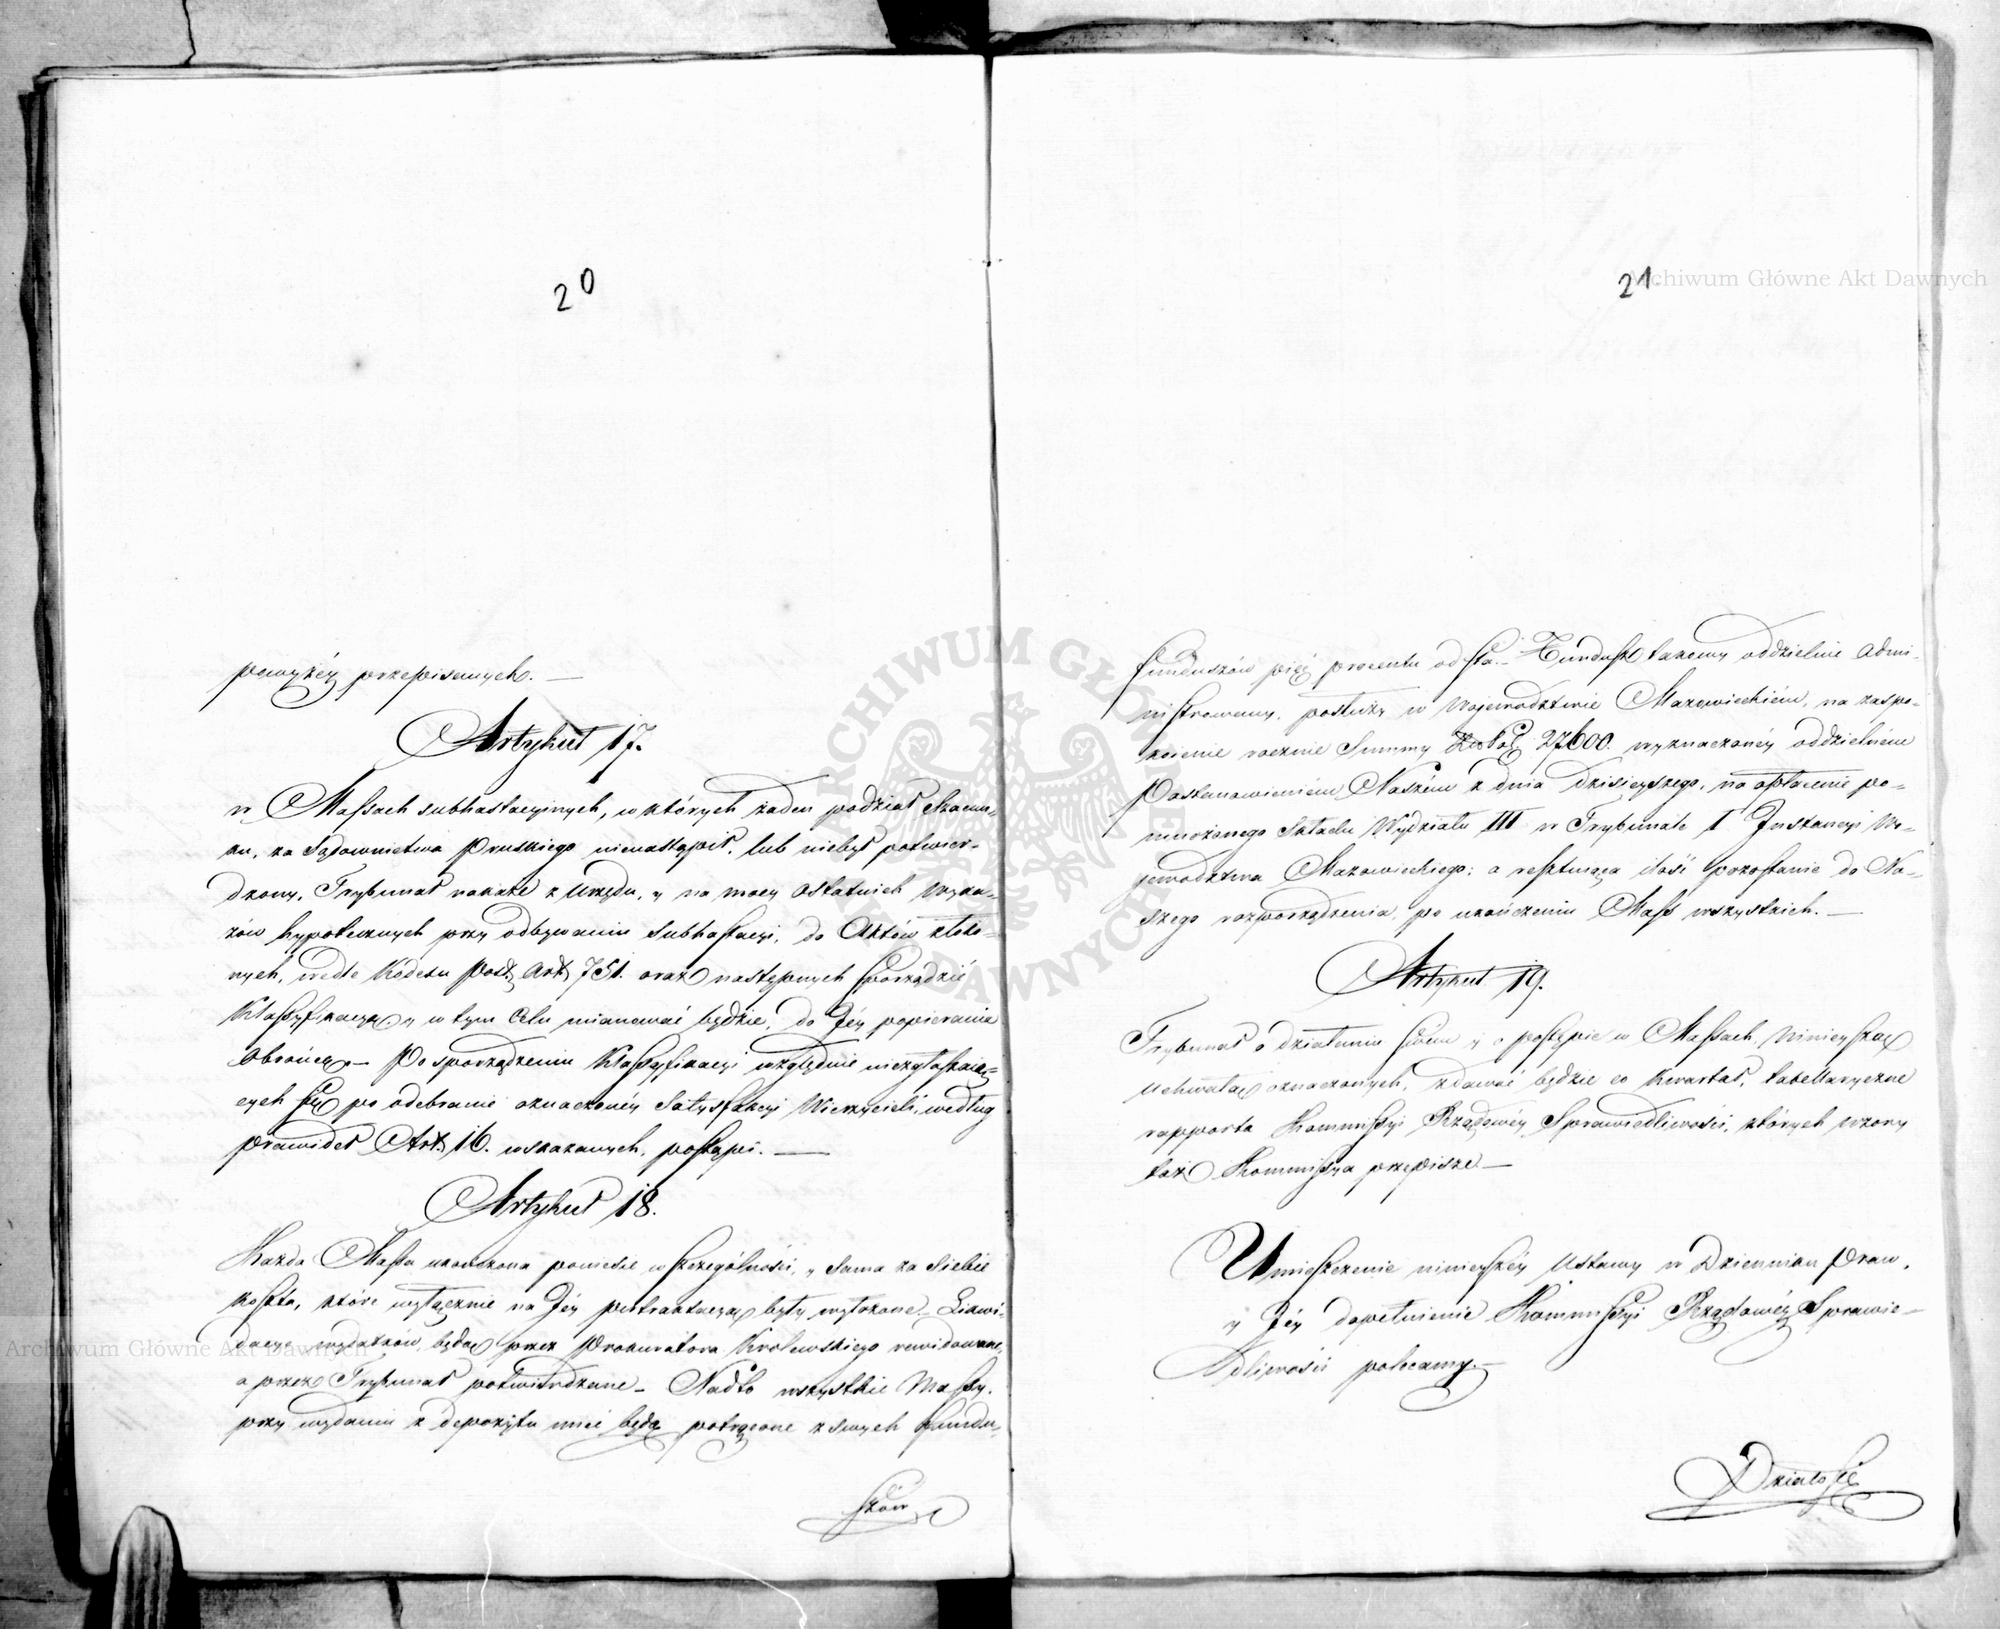 20
powyżéy przepisanych. —
Artykuł 17.
w Massach subhastacyinych, w których żaden podział Szacun-
ku, za Sądownictwa Pruskiego nienastąpił, lub niebył potwier-
dzony, Trybunał nakaże z Urzędu, y na mocy ostatnich Wyka-
zów hypotecznych przy odbywaniu Subhastacyi, do Aktów złożo-
nych, wedle Kodexu Post. Art. 751. oraz następnych sporządzić
Klassyfikacyą, y w tym Celu mianować będzie, do Jéy popierania
Obrońcę — Po sporządzeniu Klassyfikacyi względnie niezgłaszaią-
cych się po odebranie oznaczonéy Satysfakcyi Wierzycieli, według
prawideł Art. 16. wskazanych, postąpi. —
Artykuł 18.
Każda Massa ukończona poniesie w szczególności, y sama za siebie
koszta, które wyłącznie na Jéy pertraktacyą były wyłożone — Likwi-
dacye wydatków będą przez Prokuratora Królewskiego rewidowane,
a przez Trybunał potwierdzone — Nadto wszystkie Massy,
przy wydaniu z depozytu mieć będą potrącone z swych fundu-
szów
21.
funduszów pięć procentu od sta. — Fundusz takowy oddzielnie admi-
nistrowany, posłuży w Województwie Mazowieckiém, na zaspo-
koienie rocznie Summy Złotych 27600. wyznaczonéy oddzielném
Postanowieniem Naszém z dnia dzisieyszego, na opłacenie po-
mnożonego Etatu Wydziału III w Trybunale I Instancyi Wo-
jewództwa Mazowieckiego; a resztuiąca ilość pozostanie do Na-
szego rozporządzenia, po ukończeniu Mass wszystkich. —
Artykuł 19.
Trybunał o działaniu swém y o postępie w Massach, ninieyszą
Uchwałą oznaczonych, zdawać będzie co kwartał, tabellaryczne
rapporta Kommissyi Rządowéy Sprawiedliwości, których wzory
taż Kommissya przepisze —
Umieszczenie ninieyszéy Ustawy w Dzienniku Praw,
y Jéy dopełnienie Kommissyi Rządowéy Sprawie-
dliwości polecamy. —
Działo się